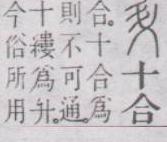 十合
合。十合爲
則不可通。
十縷爲升。
今俗所用